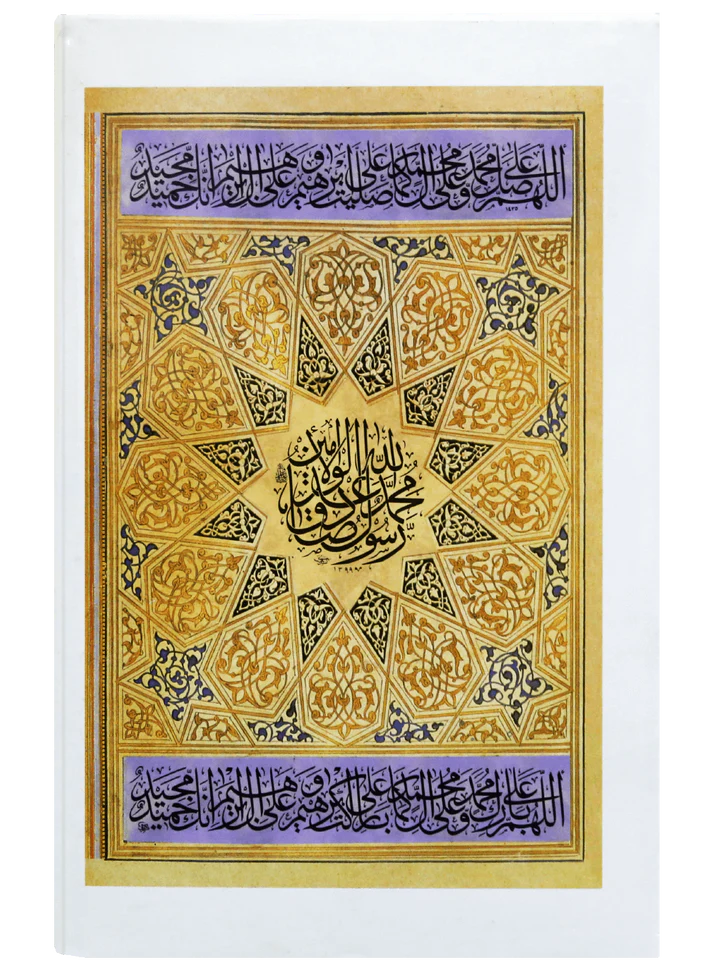 اللهم صل على محمد وعلى آل محمد كما صليت على إبراهيم وعلى آل إبراهيم إنك حميد مجيد
محمد رسول الله صادق الوعد الأمين
١٣٩٩
اللهم بارك على محمد وعلى آل محمد كما باركت على إبراهيم وعلى آل إبراهيم إنك حميد مجيد